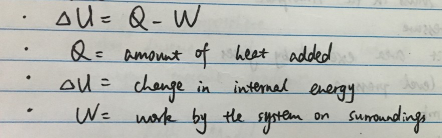 · ΔU = Q - W
· Q = amount of heat added
· ΔU = change in internal energy
· W = work by the system on surroundings